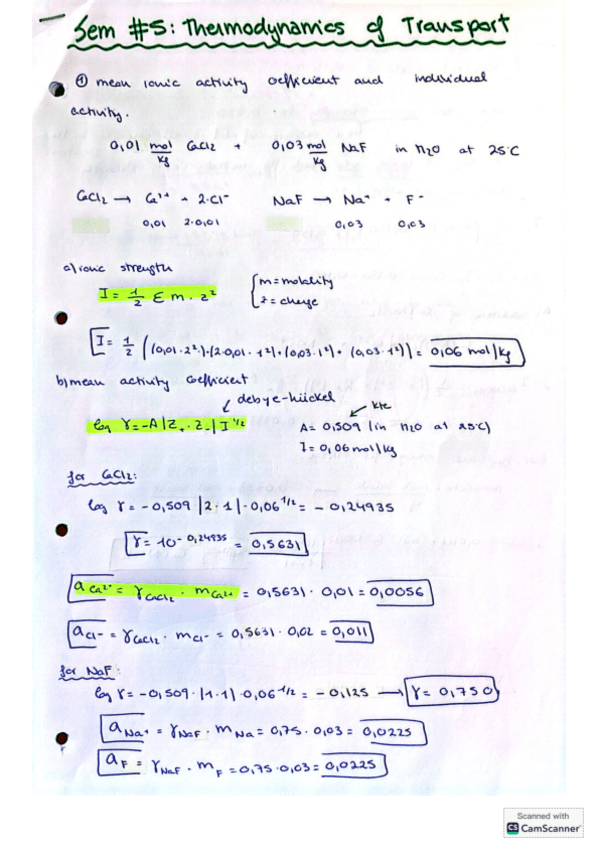 Sem #5: Thermodynamics of Transport
① mean ionic activity coefficient and individual
activity.
0,01 mol/kg CaCl2 + 0,03 mol/kg NaF in H2O at 25°C
CaCl2 → Ca2+ + 2·Cl- NaF → Na+ + F-
0,01 2·0,01 0,03 0,03
a) ionic strength
I = 1/2 Σ m · z² { m = molality
z = charge
I = 1/2 ((0,01·2²)+(2·0,01·1²)+(0,03·1²)+(0,03·1²)) = 0,06 mol/kg
b) mean activity coefficient
debye-hückel
kte
log γ = -A |Z+ · Z-| I^1/2 A = 0,509 (in H2O at 25°C)
I = 0,06 mol/kg
for CaCl2:
log γ = -0,509 |2·1| · 0,06^1/2 = -0,24935
γ = 10^-0,24935 = 0,5631
a Ca2+ = γ CaCl2 · m Ca2+ = 0,5631 · 0,01 = 0,0056
a Cl- = γ CaCl2 · m Cl- = 0,5631 · 0,02 = 0,011
for NaF:
log γ = -0,509 · |1·1| 0,06^-1/2 = -0,125 → γ = 0,750
a Na+ = γ NaF · m Na = 0,75 · 0,03 = 0,0225
a F- = γ NaF · m F = 0,75 · 0,03 = 0,0225
Scanned with
CS CamScanner